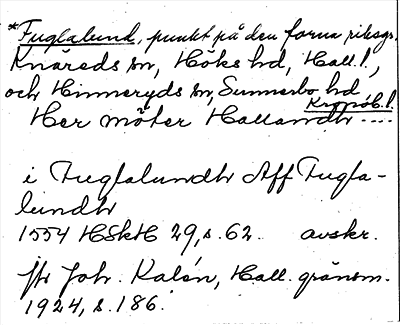 *Fuglalund, punkt på den forna riksgr.
Knäreds sn, Höks hd, Hall. l.,
och Hinneryds sn, Sunnerbo hd
Kronob. l.
Her möter Hallandh ....
i Fuglalundh Aff Fugla-
lundh
1554 HSkH 29, s. 62. avskr.
ftr Joh. Kalén, Hall. gränsm.
1924, s. 186.